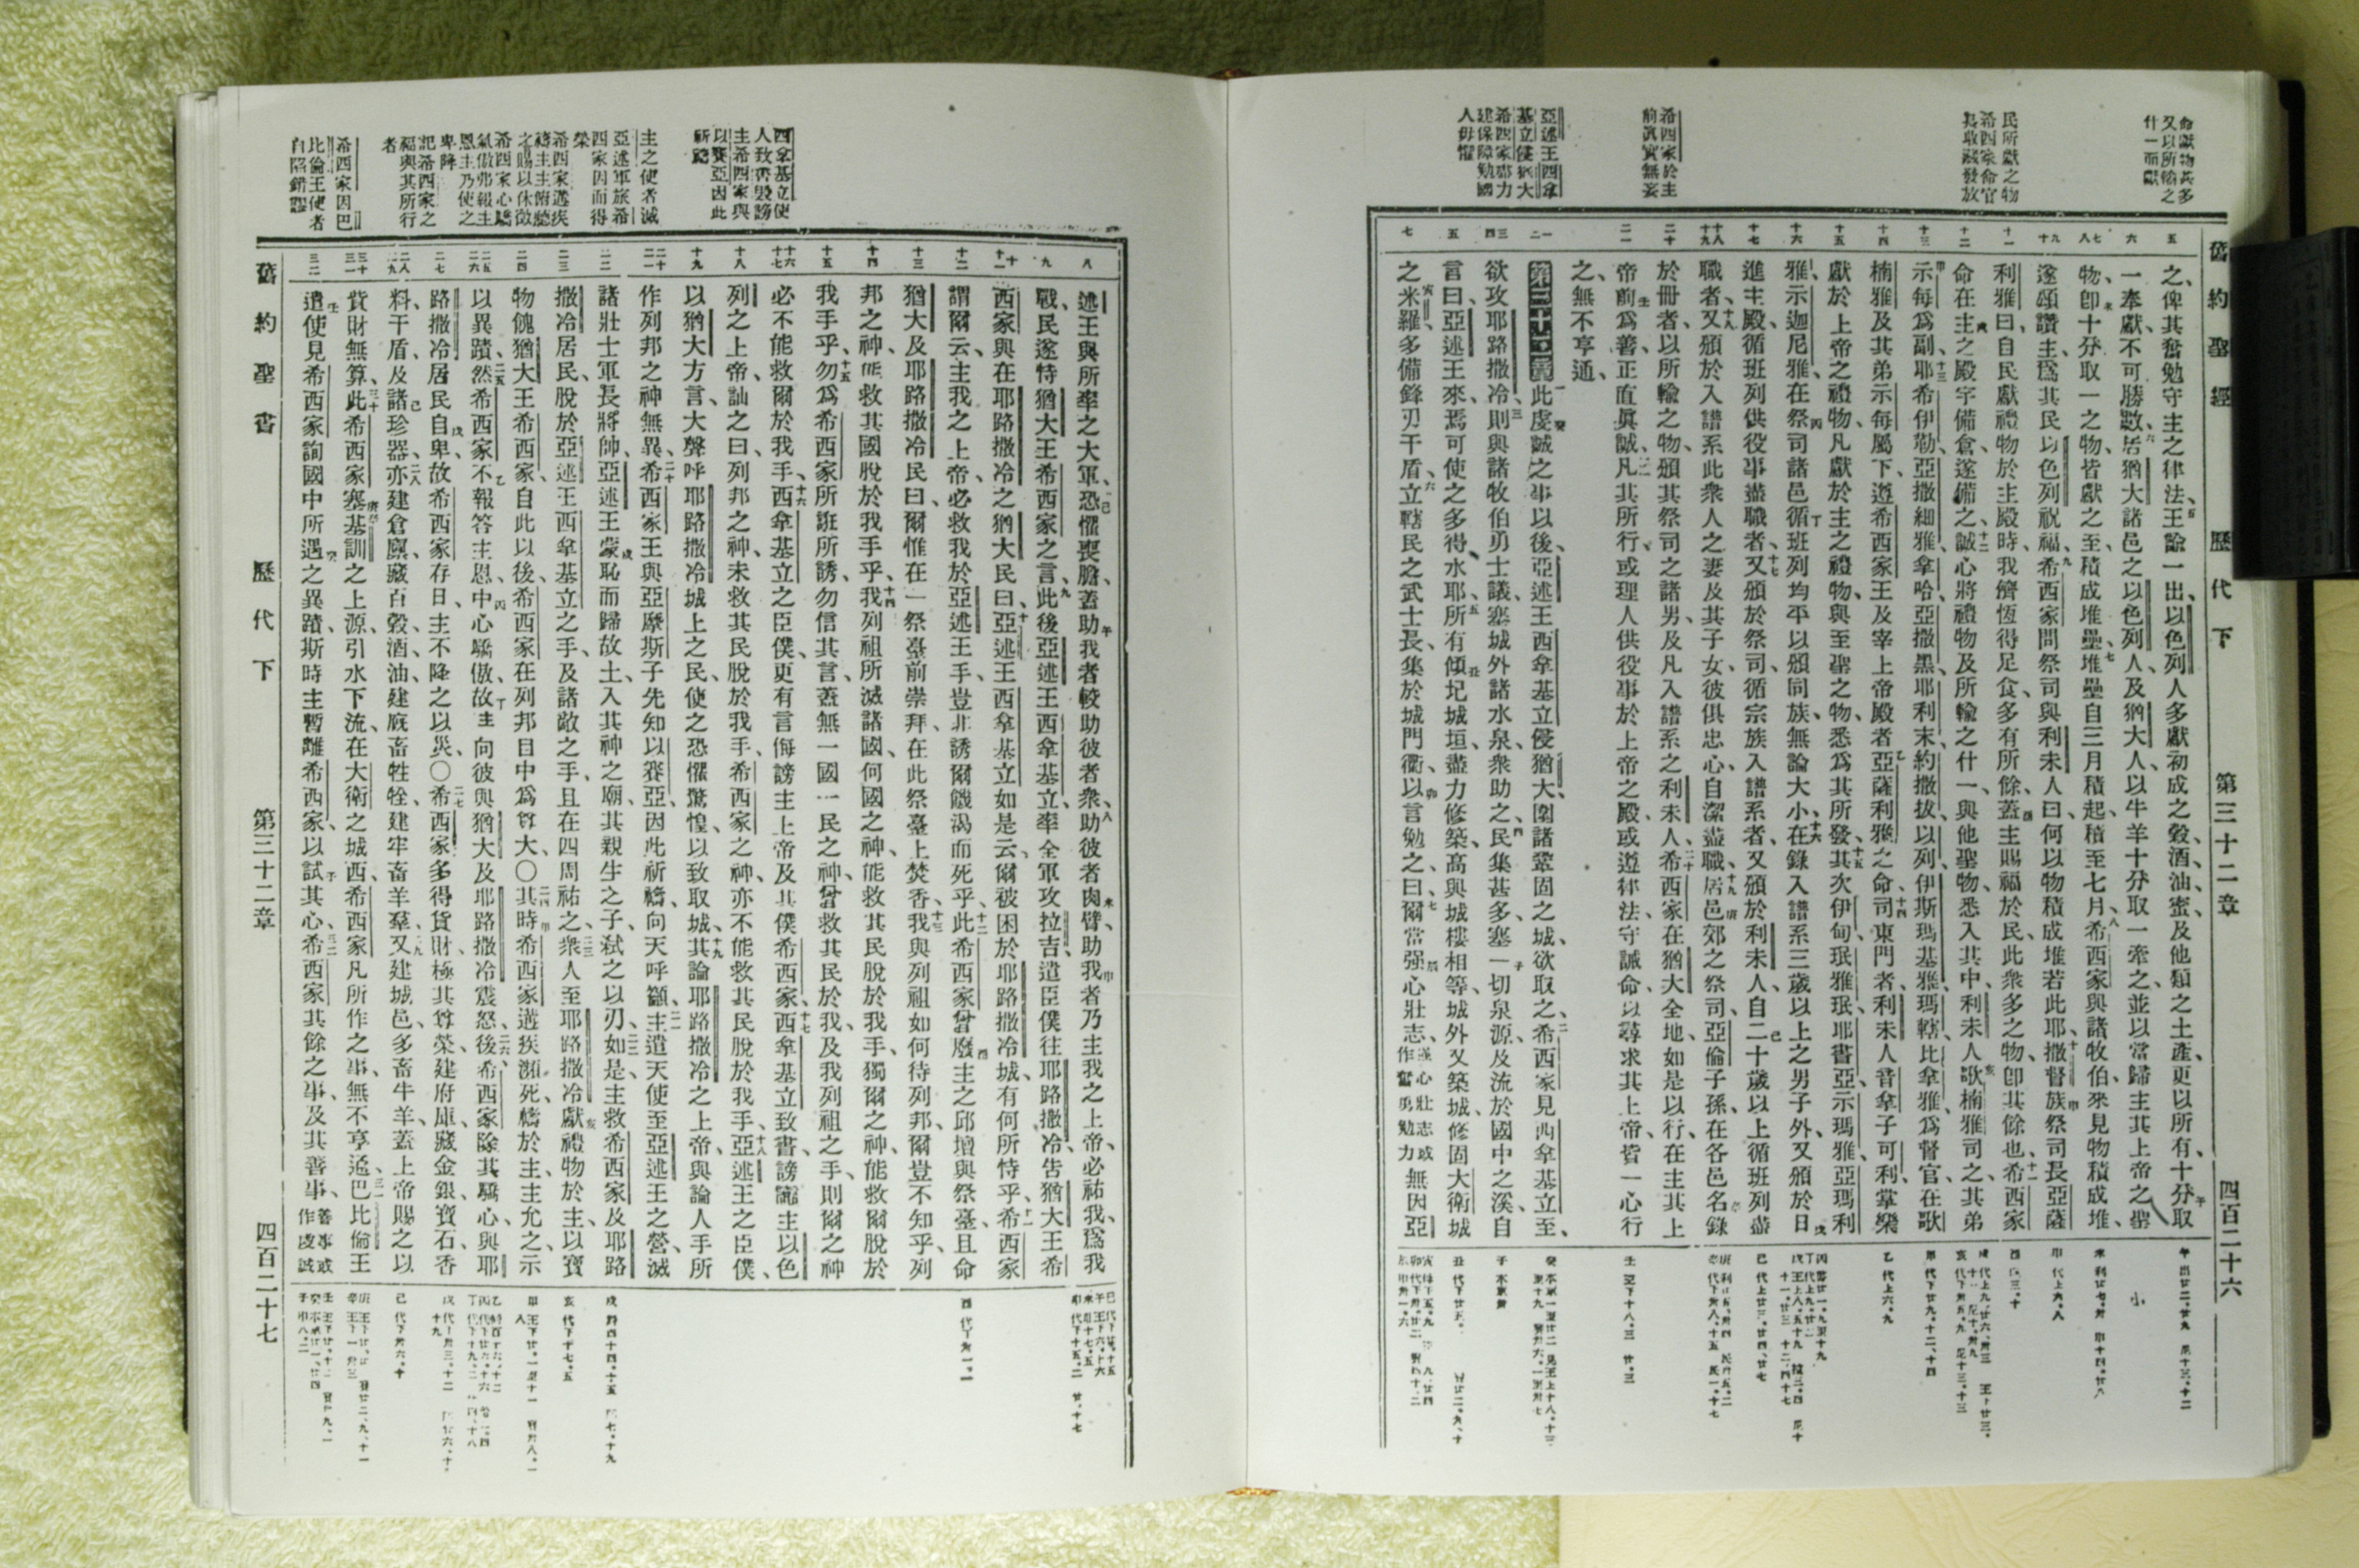 舊約聖經 歷代下 第三十二章 四百二十六
命獻物甚多
又以所輸之
什一而獻
民所獻之物
希西家命官
與收藏發放
希西家於主
前眞實無妄
亞述王西拿
基立侵猶大
希西家鄉力
建保障勸國
人毋懼
五
之、俾其奮勉守主之律法、王諭一出、以色列人多獻初成之穀、酒、油、蜜、及他類之土產、更以所有、十分取
六
一奉獻、不可勝數、居猶大諸邑之以色列人、及猶大人、以牛羊十分取一牽之、並以當歸主其上帝之聖
七八
物、卽十分取一之物、皆獻之至、積成堆壘、堆壘自三月積起、積至七月、希西家與諸牧伯來見物積成堆、
九十
遂頌讚主、爲其民以色列祝福、希西家問祭司與利未人曰、何以物積成堆若此、耶撒督族祭司長亞薩
十一
利雅曰、自民獻禮物於主殿時、我儕恆得足食、多有所餘、蓋主賜福於民、此衆多之物、卽其餘也、希西家
十二
命在主之殿宇備倉、遂備之、誠心將禮物及所輸之什一、與他聖物、悉入其中、利未人歌楠雅司之、其弟
十三
示每爲副、耶希伊勒、亞撒細雅、拿哈、亞撒黑、耶利末、約撒拔、以列、伊斯瑪基雅、瑪轄、比拿雅、爲督官、在歌
十四
楠雅及其弟示每屬下、遵希西家王及宰上帝殿者亞薩利雅之命、司東門者、利未人音拿子可利、掌樂
十五
獻於上帝之禮物、凡獻於主之禮物、與至聖之物、悉爲其所發、其次伊甸、珉雅珉、耶書亞、示瑪雅、亞瑪利
十六
雅、示迦尼雅、在祭司諸邑、循班列均平以頒同族、無論大小、在錄入譜系三歲以上之男子外、又頒於日
十七
進主殿、循班列供役事盡職者、又頒於祭司、循宗族入譜系者、又頒於利未人、自二十歲以上循班列盡
十八十九
職者、又頒於入譜系此衆人之妻及其子女、彼俱忠心、自潔盡職、居邑郊之祭司、亞倫子孫、在各邑名錄
二十
於冊者、以所輸之物、頒其祭司之諸男、及凡入譜系之利未人、希西家在猶大全地、如是以行、在主其上
二一
帝前、爲善、正直眞誠、凡其所行、或理人供役事於上帝之殿、或遵律法、守誡命、以尋求其上帝、皆一心行
之、無不亨通、
一二
第三十二章 此虔誠之事以後、亞述王西拿基立侵猶大、圍諸鞏固之城、欲取之、希西家見西拿基立至、
三四
欲攻耶路撒冷、則與諸牧伯勇士議、塞城外諸水泉、衆助之、民集甚多、塞一切泉源、及流於國中之溪、自
五
言曰、亞述王來、焉可使之多得水耶、所有傾圮城垣、盡力修築、高與城樓相等、城外又築城、修固大衛城
七
之米羅、多備鋒刃干盾、立轄民之武士長、集於城門衢、以言勉之、曰、爾當强心壯志、强心壯志或作奮勇勉力 無因亞
四百二十七
西拿基立使
人致書毀謗
主希西家與
以賽亞因此
祈禱
主之使者滅
亞述軍旅希
四家因而得
榮
希西家遘疾
禱主主俯聽
之賜以休徵
希四家心驕
氣傲弗報主
恩主乃使之
卑降
記希四家之
福與其所行
者
希西家因巴
比倫王使者
自陷錯謬
八
述王與所率之大軍、恐懼喪膽、蓋助我者較助彼者衆、助彼者肉臂、助我者乃主我之上帝、必祐我、爲我
九
戰、民遂恃猶大王希西家之言、此後亞述王西拿基立、率全軍攻拉吉、遣臣僕往耶路撒冷、告猶大王希
十十一
西家與在耶路撒冷之猶大民曰、亞述王西拿基立如是云、爾被困於耶路撒冷城、有何所恃乎、希西家
十二
謂爾云、主我之上帝、必救我於亞述王手、豈非誘爾饑渴而死乎、此希西家曾廢主之邱壇與祭臺、且命
十三
猶大及耶路撒冷民曰、爾惟在一祭臺前崇拜、在此祭臺上焚香、我與列祖如何待列邦、爾豈不知乎、列
十四
邦之神、能救其國脫於我手乎、我列祖所滅諸國、何國之神、能救其民脫於我手、獨爾之神、能救爾脫於
十五
我手乎、勿爲希西家所誑所誘、勿信其言、蓋無一國一民之神、曾救其民於我、及我列祖之手、則爾之神
十六十七
必不能救爾於我手、西拿基立之臣僕、更有言侮謗主上帝及其僕希西家、西拿基立致書謗讟主以色
十八
列之上帝、訕之曰、列邦之神、未救其民脫於我手、希西家之神、亦不能救其民脫於我手、亞述王之臣僕、
十九
以猶大方言、大聲呼耶路撒冷城上之民、使之恐懼驚惶、以致取城、其論耶路撒冷之上帝、與論人手所
二十二一
作列邦之神無異、希西家王與亞摩斯子先知以賽亞、因此祈禱、向天呼籲、主遣天使至亞述王之營、滅
二二
諸壯士軍長將帥、亞述王蒙恥而歸故土、入其神之廟、其親生之子、弒之以刃、如是主救希西家及耶路
二三
撒冷居民、脫於亞述王西拿基立之手、及諸敵之手、且在四周祐之、衆人至耶路撒冷、獻禮物於主、以寶
二四
物餽猶大王希西家、自此以後、希西家在列邦目中爲尊大、〇其時希西家遘疾瀕死、禱於主、主允之、示
二五二六
以異蹟、然希西家不報答主恩、中心驕傲、故主向彼與猶大及耶路撒冷震怒、後希西家除其驕心、與耶
二七
路撒冷居民自卑、故希西家存日、主不降之以災、〇希西家多得貨財、極其尊榮、建府庫、藏金銀、寶石、香
二八二九
料、干盾、及諸珍器、亦建倉廩、藏百穀、酒、油、建廐畜牲牷、建牢畜羊羣、又建城邑、多畜牛羊、蓋上帝賜之以
三十三一
貨財無算、此希西家塞基訓之上源、引水下流、在大衛之城西、希西家凡所作之事、無不亨通、巴比倫王
三二
遣使見希西家、詢國中所遇之異蹟、斯時主暫離希西家、以試其心、希西家其餘之事、及其善事、善事或作虔誠
舊約聖書 歷代下 第三十二章